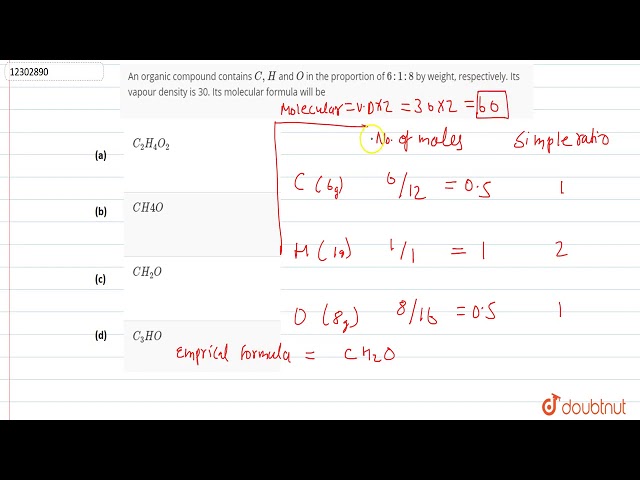 12302890
An organic compound contains C, H and O in the proportion of 6 : 1 : 8 by weight, respectively. Its
vapour density is 30. Its molecular formula will be
Molecular = V.D×2 = 30×2 = 60
No. of moles Simple ratio
(a) C₂H₄O₂
C (6g) 6/12 = 0.5 1
(b) CH4O
H (1g) 1/1 = 1 2
(c) CH₂O
O (8g) 8/16 = 0.5 1
(d) C₃HO
Emprical formula = CH₂O
doubtnut